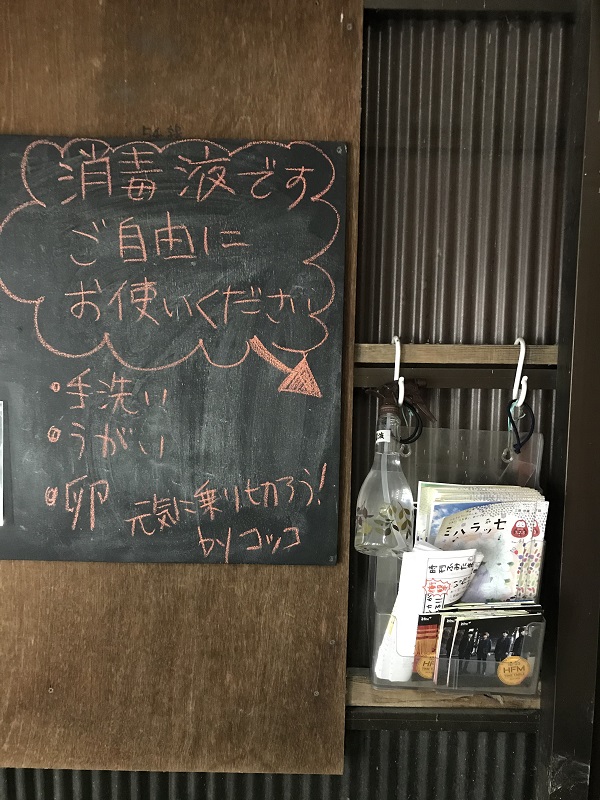 消毒液です
ご自由に
お使いください
・手洗い
・うがい
・卵
元気に乗り切ろう!
by コッコ
ミハラッ七
HFM